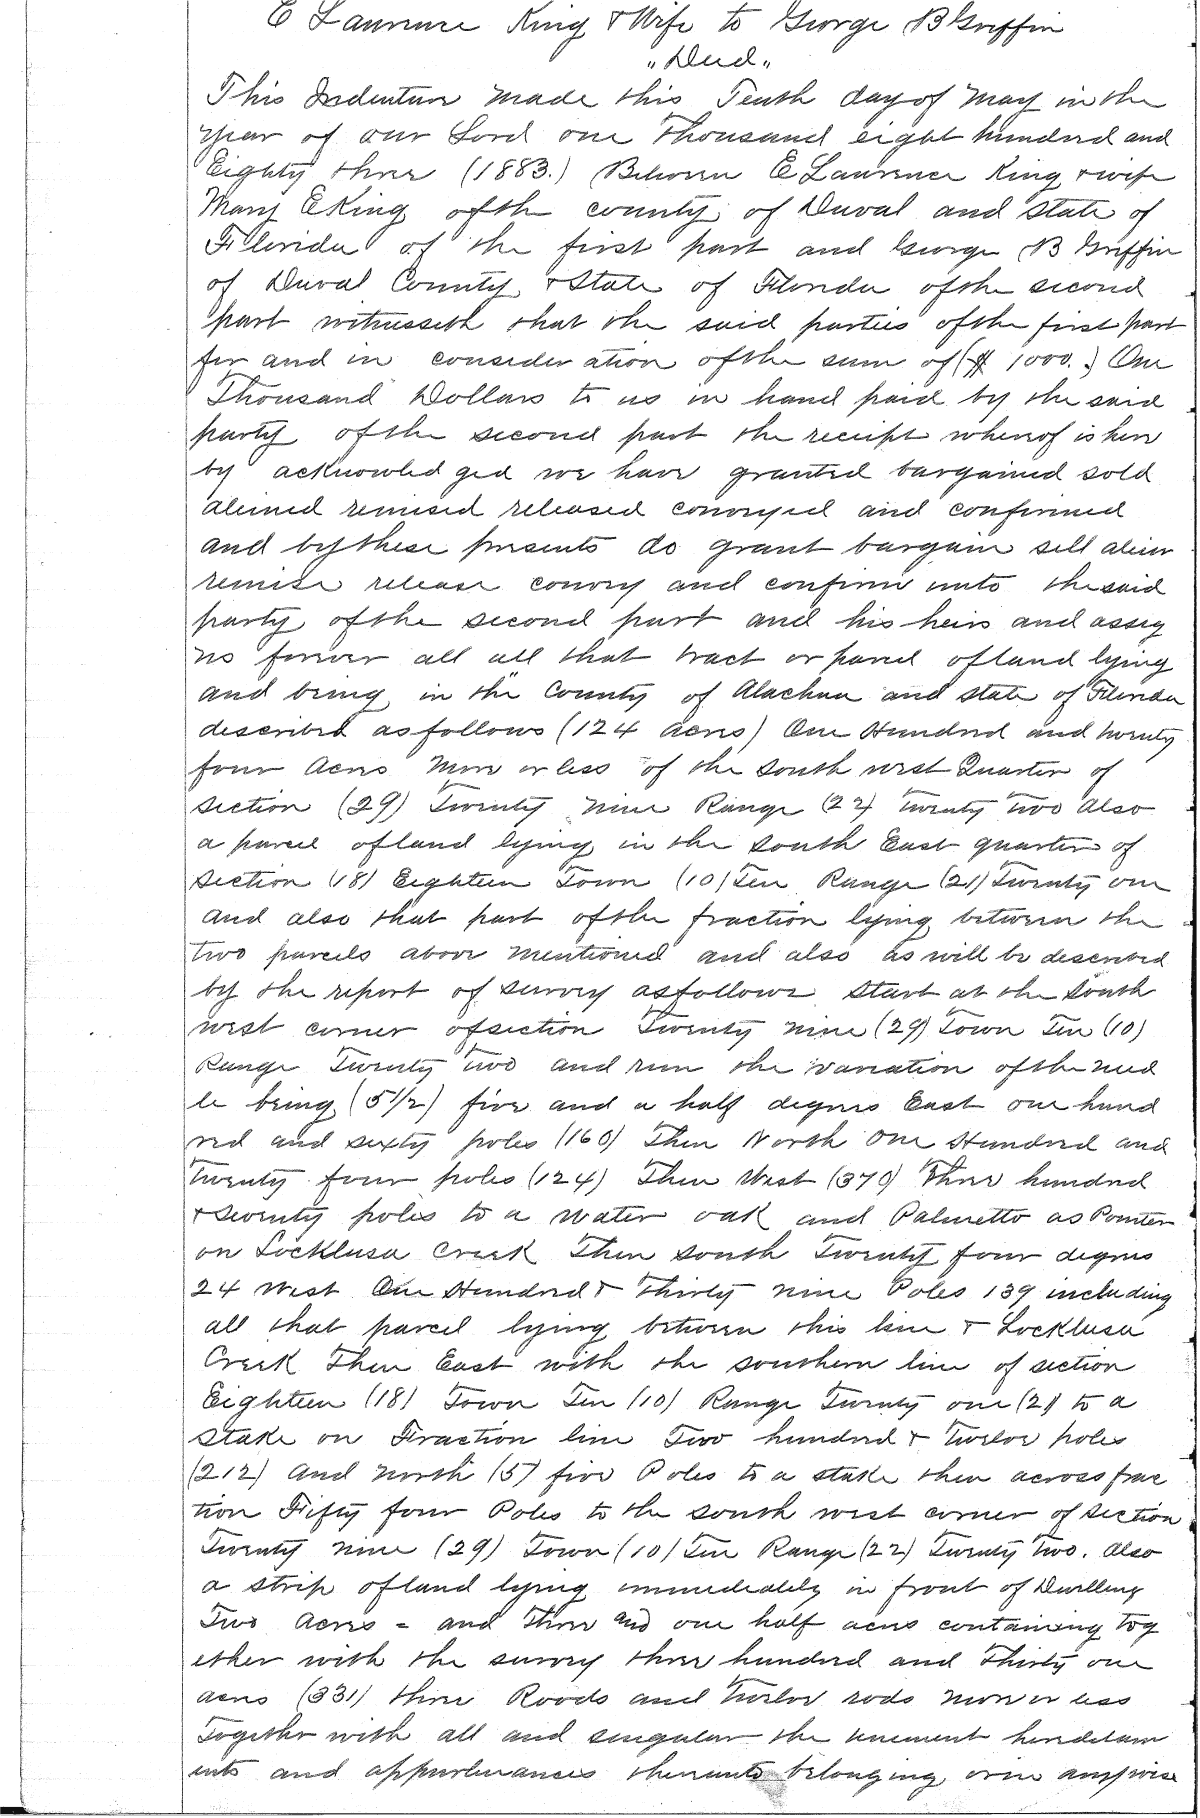 E Laurence King & Wife to George B Griffin
"Deed"
This Indenture Made this Tenth day of May in the
year of our Lord one Thousand eight hundred and
Eighty three (1883.) Between E Laurence King & wife
Mary E King of the county of Duval and State of
Florida of the first part and George B Griffin
of Duval County & State of Florida of the second
part witnesseth that the said parties of the first part
for and in consider ation of the sum of ($ 1000.) One
Thousand Dollars to us in hand paid by the said
party of the second part the receipt whereof is here
by acknowled ged we have granted bargained sold
aliened remised released conveyed and confirmed
and by these presents do grant bargain sell alien
remise release convey and confirm unto the said
party of the second part and his heirs and assig
ns forever all all that tract or parcel of land lying
and being in the County of Alachua and State of Florida
described as follows (124 acres) One Hundred and twenty
four Acres More or less of the South west Quarter of
Section (29) Twenty nine Range (22) twenty two Also
a parcel of land lying in the South East quarter of
Section (18) Eighteen Town (10) Ten Range (21) Twenty one
and also that part of the fraction lying between the
two parcels above mentioned and also as will be described
by the report of survey as follows Start at the South
west corner of section Twenty nine (29) Town Ten (10)
Range Twenty two and run the variation of the need
le being (5 1/2) five and a half degrees East one hund
red and sixty poles (160) Then North One Hundred and
twenty four poles (124) Then West (370) Three hundred
& Seventy poles to a Water oak and Palmetto as Pointers
on Locklusa Creek Then South Twenty four degrees
24 West One Hundred & Thirty nine Poles 139 including
all that parcel lying between this line & Locklusa
Creek Then East with the southern line of section
Eighteen (18) Town Ten (10) Range Twenty one (21) to a
Stake on Fraction line Two hundred & twelve poles
(212) And North (5) five Poles to a stake then across frac
tion Fifty four Poles to the south west corner of Section
Twenty nine (29) Town (10) Ten Range (22) Twenty Two. Also
a strip of land lying immediately in front of Dwelling
Two Acres = and Three and one half acres containing tog
ether with the survey three hundred and Thirty one
acres (331) three Roods and twelve rods more or less
Together with all and singular the tenement heriditam
ents and appurtenances thereunto belonging or in anywise